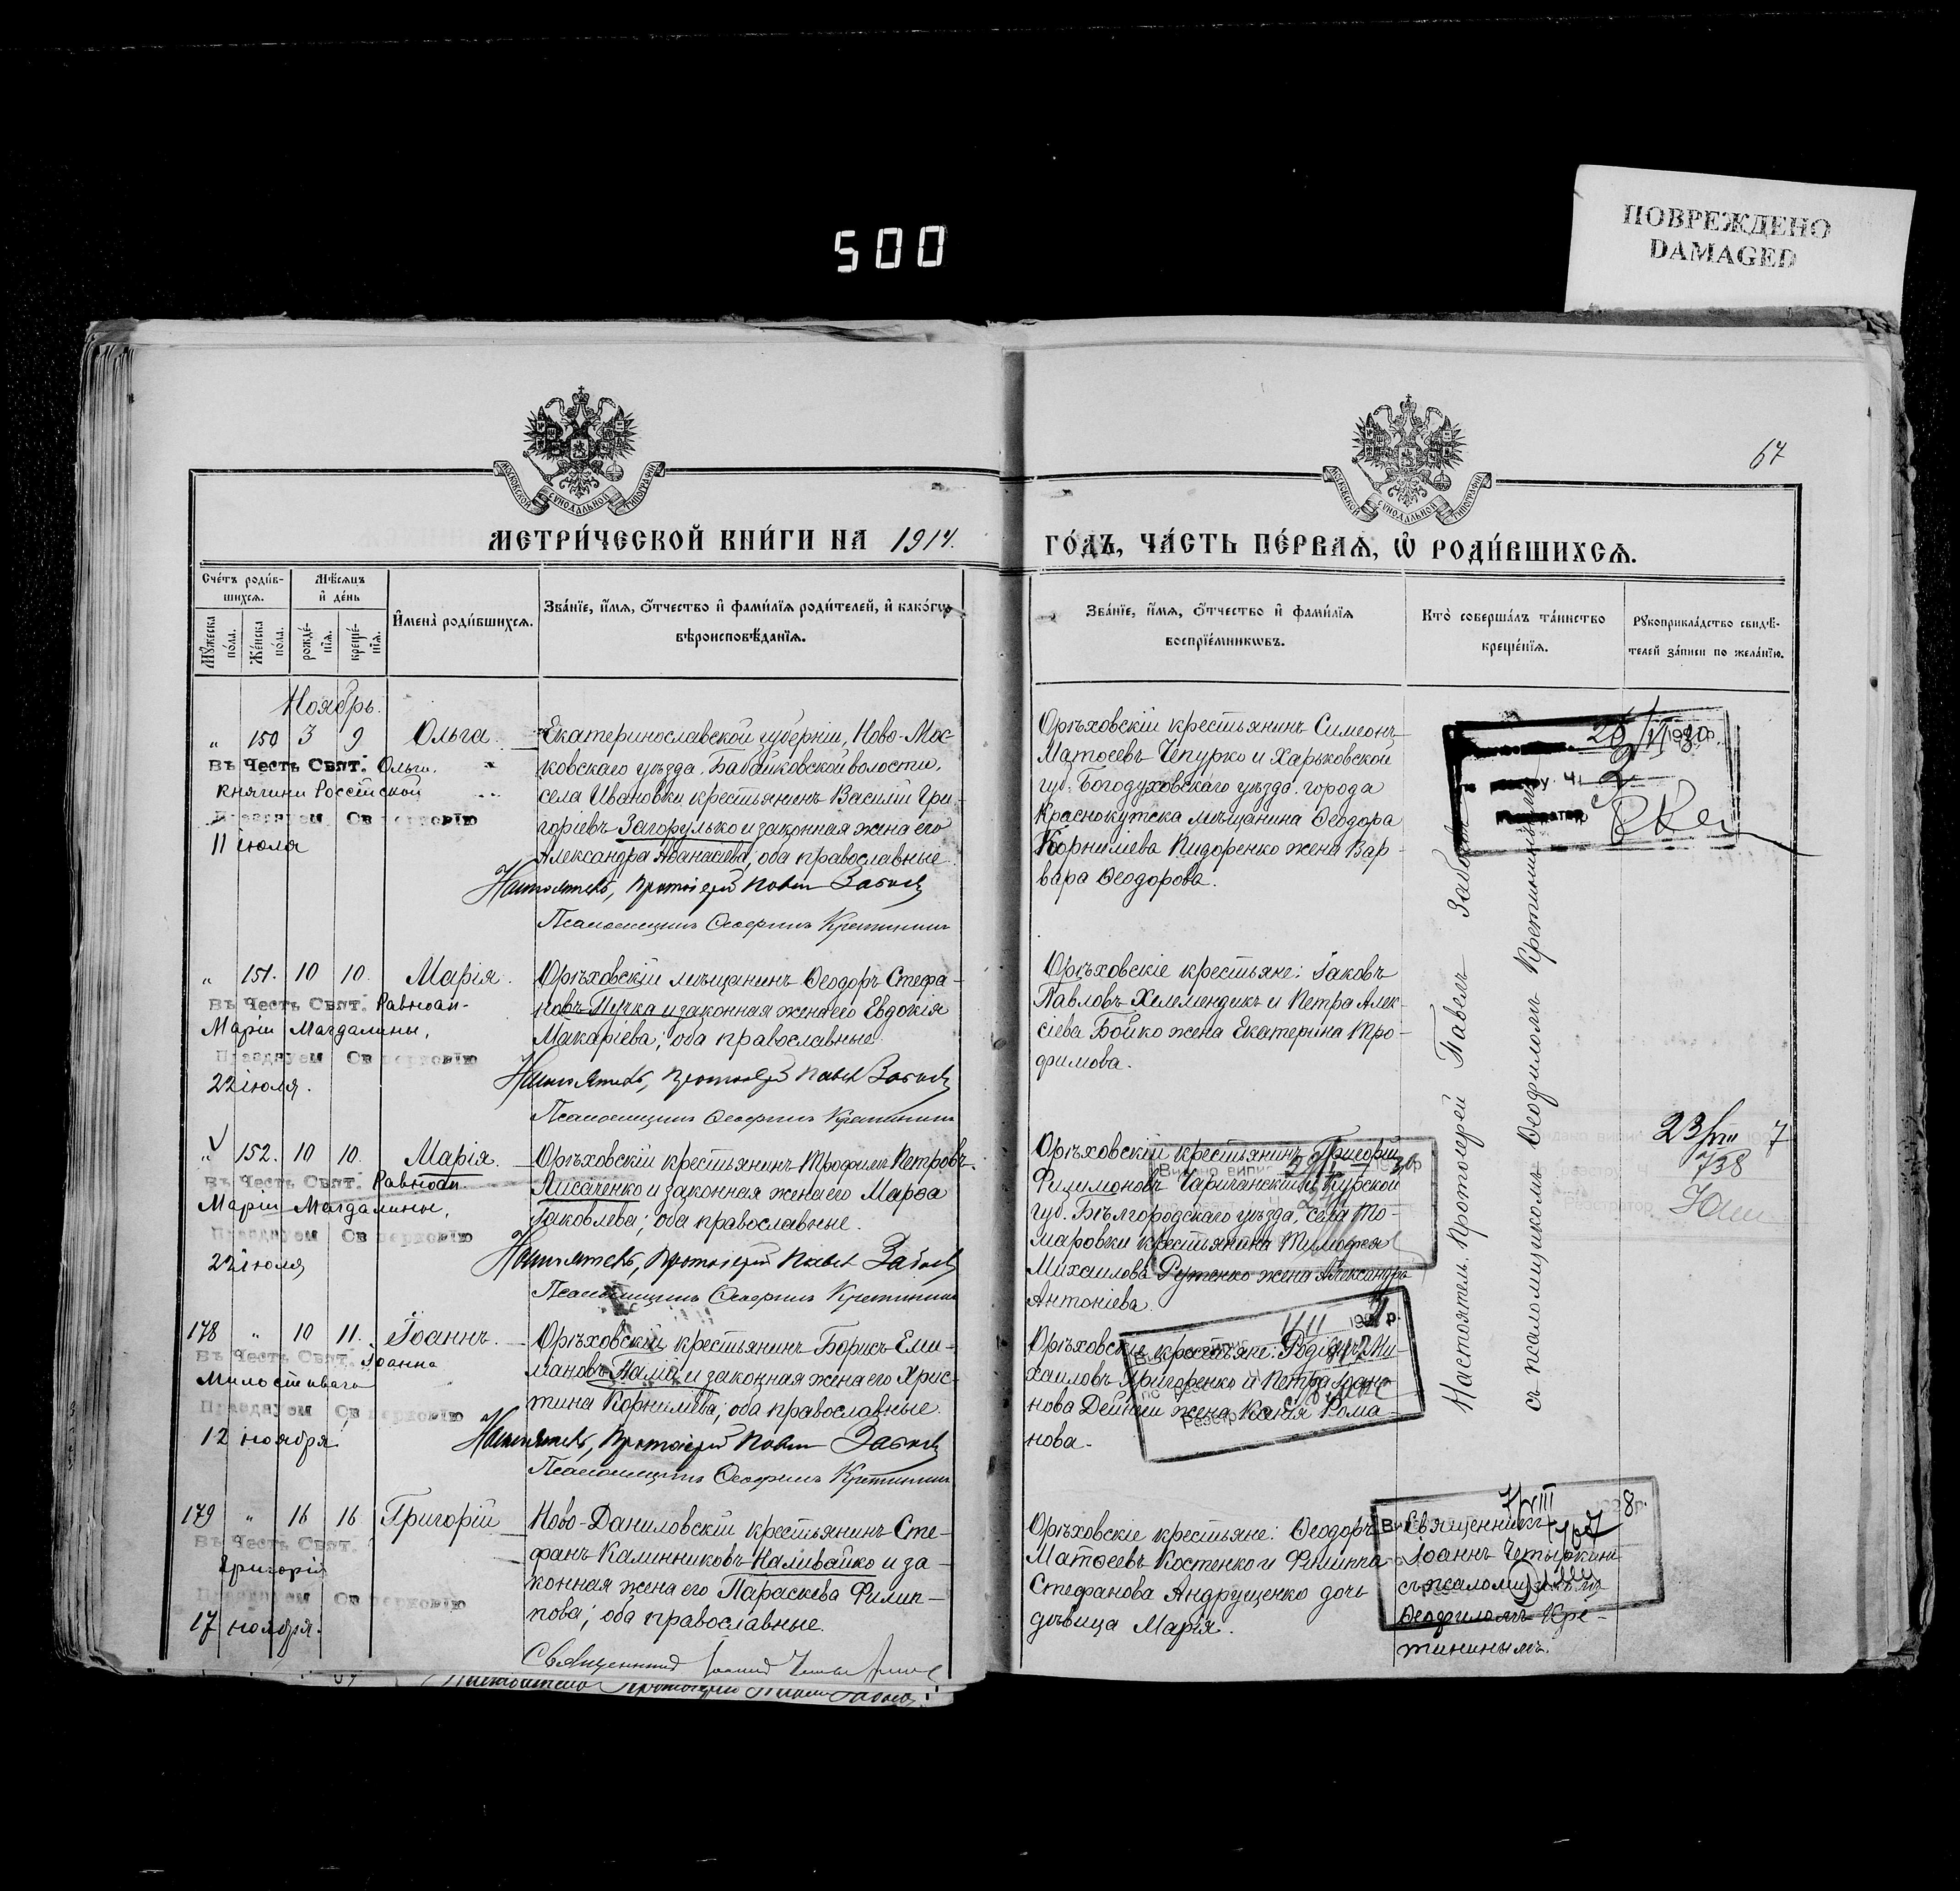 500
ПОВРЕЖДЕНО
DAMAGED
67
МОСКОВСКОЙ СѴНОДАЛЬНОЙ ТИПОГРАФІИ
МОСКОВСКОЙ СѴНОДАЛЬНОЙ ТИПОГРАФІИ
МЕТРИ́ЧЕСКОЙ КНИ́ГИ НА 1914.
ГО́ДЪ, ЧА́СТЬ ПЕ́РВАѦ, Ѡ҆ РОДИ́ВШИХСѦ.
Сче́тъ роди́в-
шихсѧ.
Мѣ́сѧцъ
и҆ де́нь
Мꙋ́жеска
по́ла.
Же́нска
по́ла.
рожде́-
нїѧ.
креще́-
нїѧ.
И҆мена̀ роди́вшихсѧ.
Зва́нїе, и҆́мѧ, ѻ҆́тчество и҆ фами́лїѧ роди́телей, и҆ како́гѡ
вѣроисповѣ́данїѧ.
Зва́нїе, и҆́мѧ, ѻ҆́тчество и҆ фами́лїѧ
воспрїе́мникѡвъ.
Кто̀ соверша́лъ та́инство
креще́нїѧ.
Рꙋкоприкла́дство свидѣ́-
телей за́писи по жела́нїю.
Ноябрь.
" 150 3 9 Ольга.
Въ Честь Свят. Ольги.
Княгини Россійской
Празднуем Св церковію
11 іюля
Екатеринославской губерніи, Ново-Мос-
ковскаго уѣзда, Бабайковской волости,
села Ивановки крестьянинъ Василій Гри-
горіевъ Загорулько и законная жена его
Александра Аѳанасіева; оба православные.
Настоятель, Протоіерей Павелъ Забаевъ
Псаломщикъ Ѳеофилъ Кретининъ
Орѣховскій крестьянинъ Симеонъ
Матѳеевъ Чепурко и Харьковской
губ. Богодуховскаго уѣзда. города
Краснокутска мѣщанина Ѳеодора
Корнилiева Пидоренко жена Вар-
вара Ѳеодорова.
" 151. 10 10. Марія.
Въ Честь Свят. Равноап-
Маріи Магдалины,
Празднуем Св церковію
22 іюля.
Орѣховскій мѣщанинъ Ѳеодоръ Стефа-
новъ Пучка и законная жена его Евдокія
Макаріева; оба православные.
Настоятель, Протоіерей Павелъ Забаевъ
Псаломщикъ Ѳеофилъ Кретининъ
Орѣховскіе крестьяне: Іаковъ
Павловъ Хелемендикъ и Петра Алек-
сіева Бойко жена Екатерина Тро-
фимова.
" 152. 10 10. Марія.
Въ Честь Свят. Равноап.
Маріи Магдалины,
Празднуем Св церковію
22 іюля
Орѣховскій крестьянинъ Трофимъ Петровъ
Лисаченко и законная жена его Марѳа
Іаковлева; оба православные.
Настоятель, Протоіерей Павелъ Забаевъ
Псаломщикъ Ѳеофилъ Кретининъ
Орѣховскій крестьянинъ Григорій
Филимоновъ Чаричанскій и Курской
губ. Бѣлгородскаго уѣзда, села То-
маровки крестьянина Тимоѳея
Михаилова Рутенко жена Александра
Антоніева.
23/VIII 7
738
178 " 10 11. Іоаннъ.
Въ Честь Свят. Іоанна
Милостиваго
Празднуем Св церковію
12 ноября
Орѣховскій крестьянинъ Борисъ Ели-
и законная жена его Хрис-
тина Корниліева; оба православные.
Настоятель, Протоіерей Павелъ Забаевъ
Псаломщикъ Ѳеофилъ Кретининъ
Орѣховскіе крестьяне: Родіонъ Ми-
хаиловъ Григоренко и Петра Іоан-
нова Дейнеги жена Ксенія Рома-
нова.
179 " 16 16 Григорій
Въ Честь Свят.
Григорія
Празднуем Св церковію
17 ноября.
Ново-Даниловскій крестьянинъ Сте-
фанъ Калинниковъ Наливайко и за-
конная жена его Параскева Филип-
пова; оба православные.
Священникъ Іоаннъ Четыркинъ
Орѣховскіе крестьяне: Ѳеодоръ
Матѳеевъ Костенко и Филиппа
Стефанова Андрущенко дочь
дѣвица Марія.
Священникъ
Іоаннъ Четыркинъ
съ псаломщикомъ
Ѳеофиломъ Кре-
тининымъ.
Настоятель. Протоіерей Павелъ Забаевъ
съ псаломщикомъ Ѳеофиломъ Кретининымъ